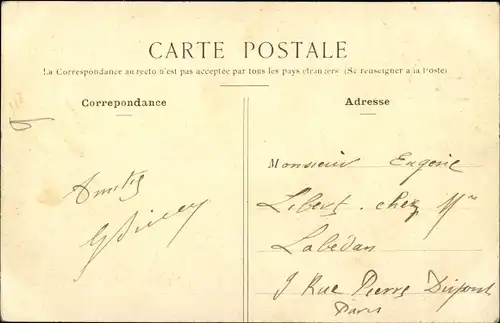 CARTE POSTALE
La Correspondance au recto n'est pas acceptée par tous les pays étrangers (Se renseigner à la Poste)
Correpondance
Adresse
Monsieur Eugène
Libert. chez Mme
Labedan
9 Rue Pierre Dupont
Paris
Amitiés